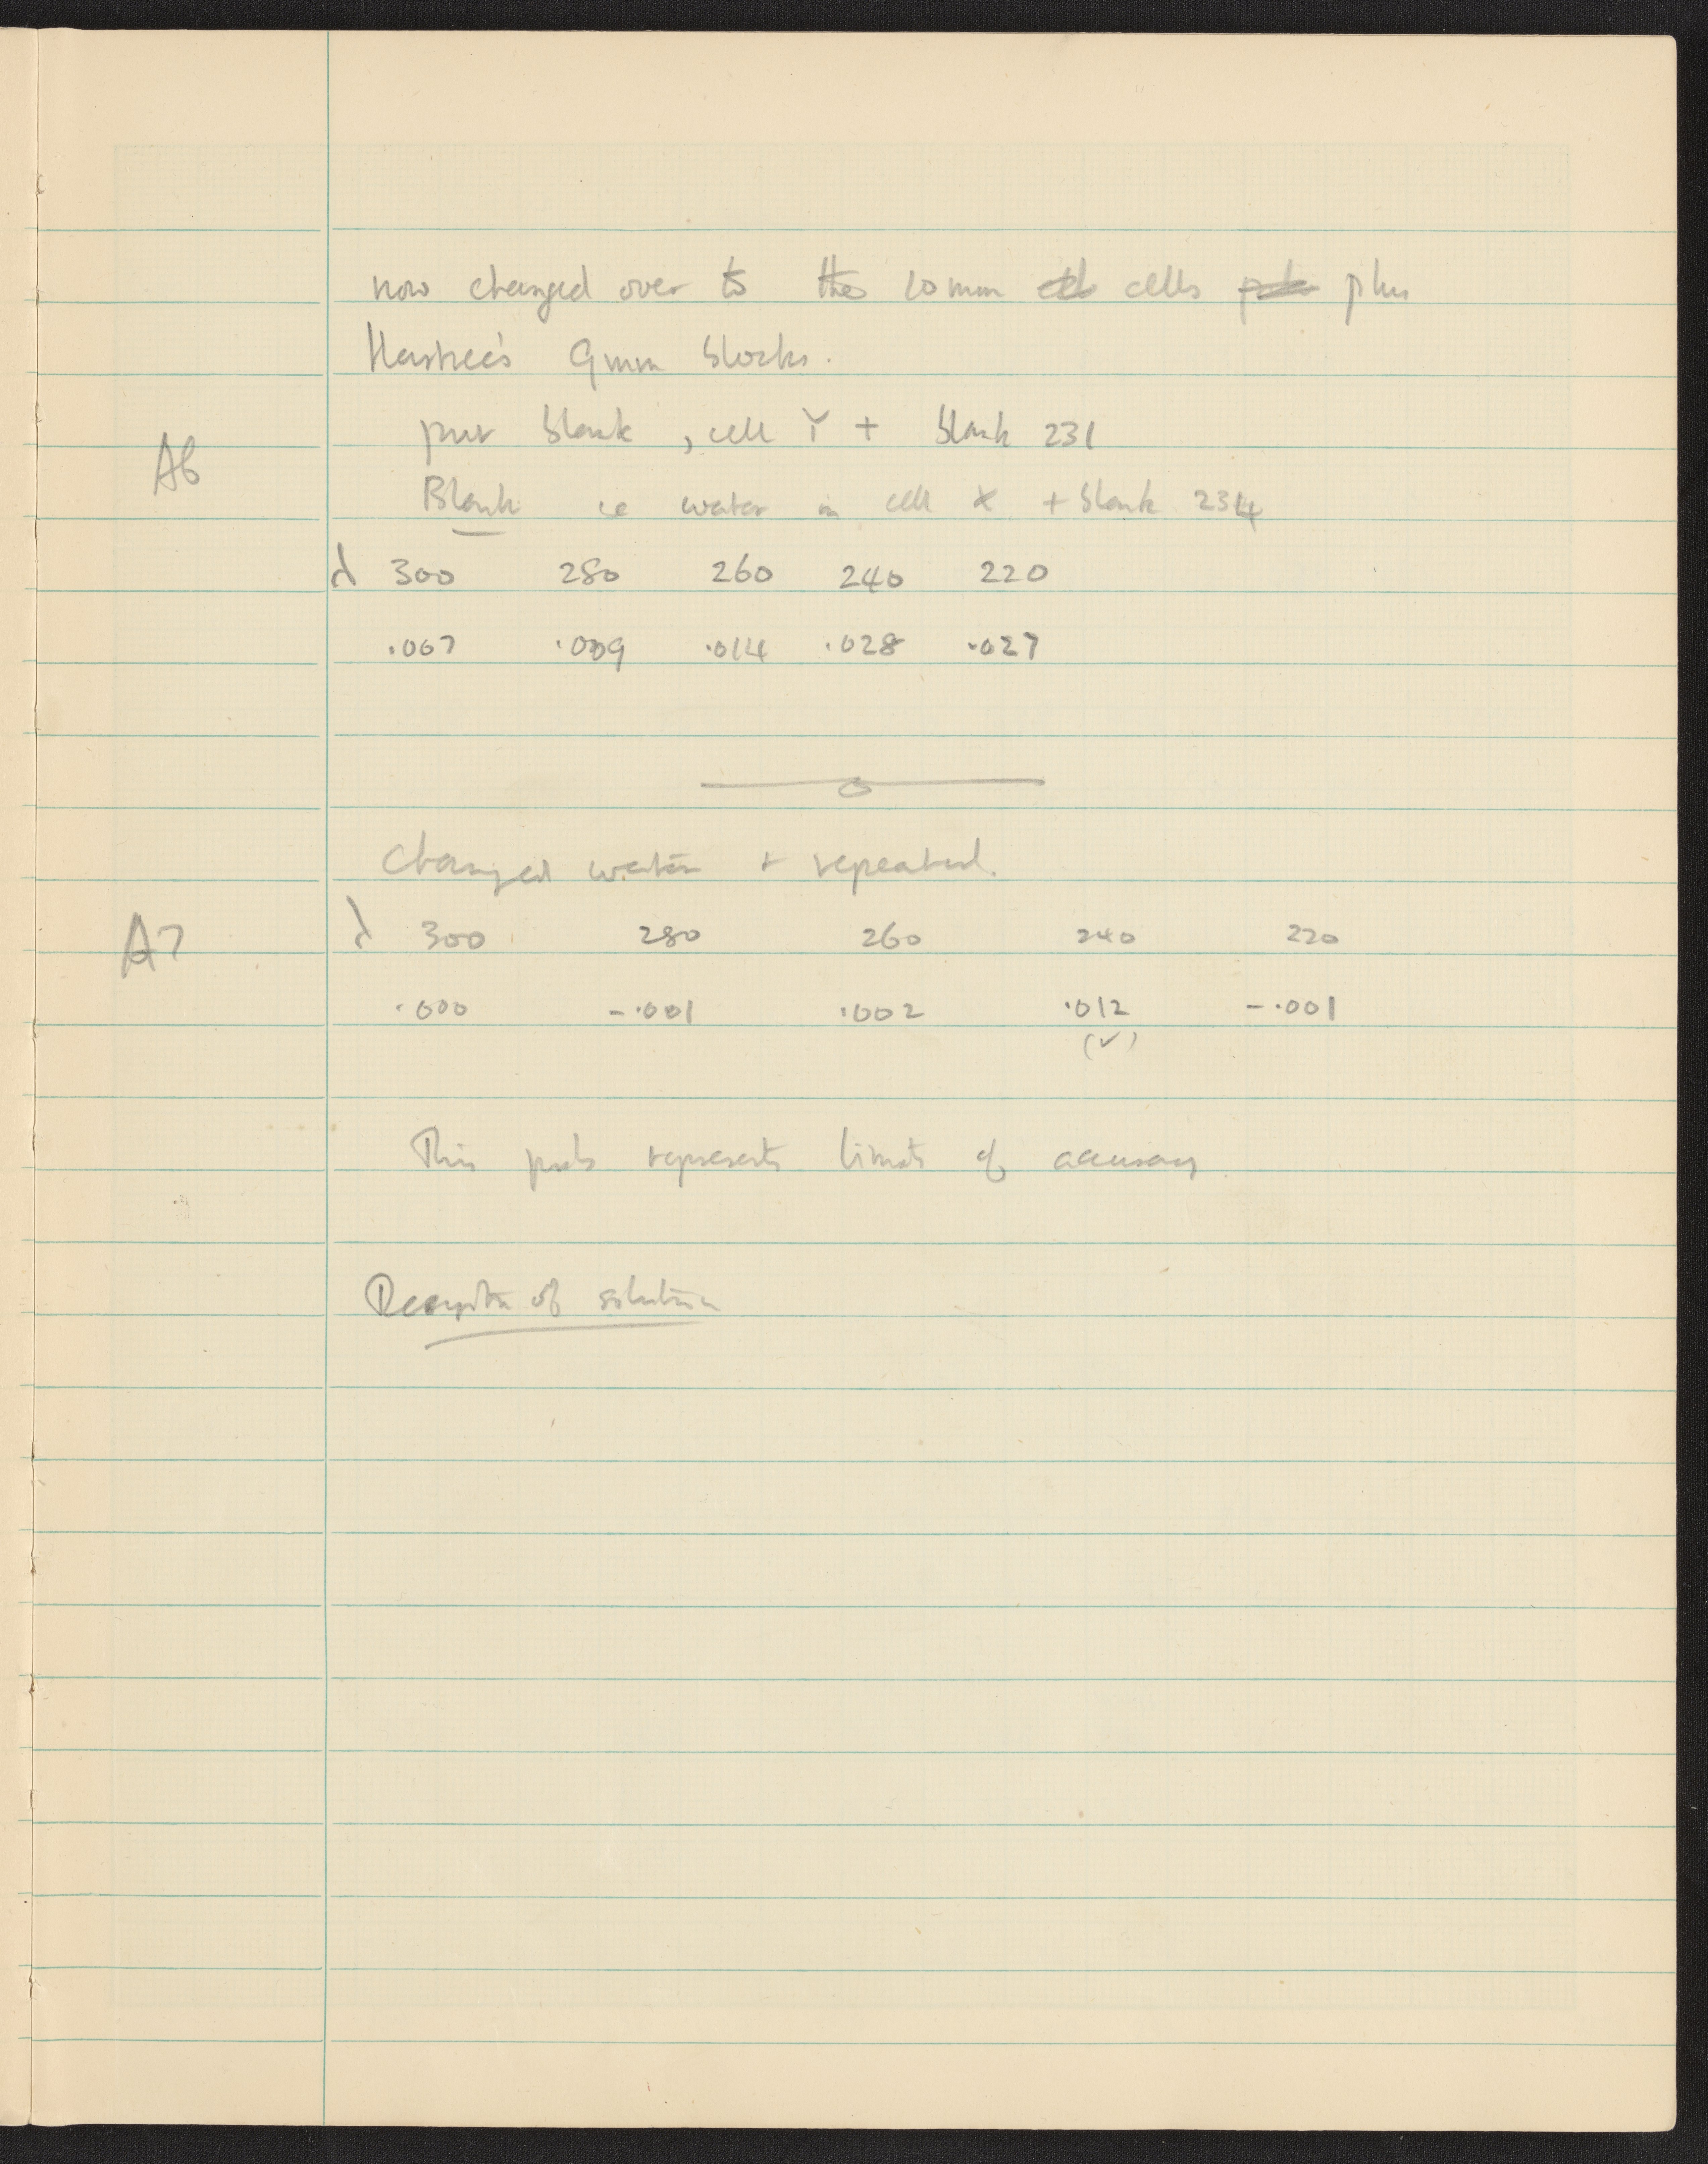 now changed over to the 10 mm cells plus
9mm blocks.
blank, cell Y + blank 231
A6
Blank ie water in cell X + blank 234
λ 300 280 260 240 220
.007 .009 .014 .028 .027
Changed water + repeated.
A7
λ 300 280 260 240 220
.000 -.001 .002 .012 -.001
(✓)
This prob represents limits of accuracy
Description of solution